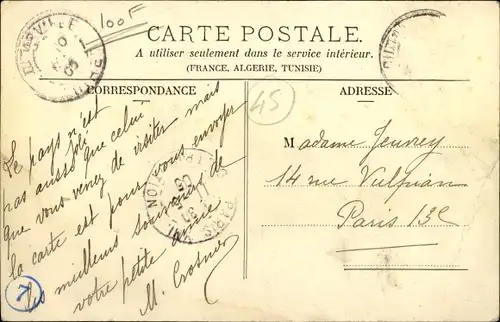 100F
CARTE POSTALE.
A utiliser seulement dans le service intérieur.
(FRANCE, ALGERIE, TUNISIE)
CORRESPONDANCE
ADRESSE
45
Le pays n'est
pas aussi joli
que celui
que vous venez de visiter mais
la carte est pour vous envoyer
les meilleurs souvenirs de
votre petite amie
M. Crosnier
Madame Jeuvrey
14 rue Vulpian
Paris 13e
PARIS